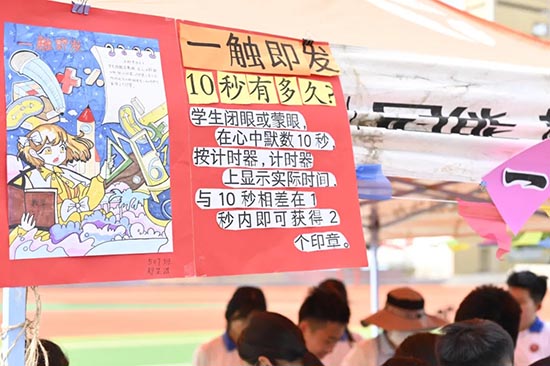 一触即发
一触即发
10秒有多久?
学生闭眼或蒙眼,
在心中默数10秒,
按计时器,计时器
上显示实际时间,
与10秒相差在1
秒内即可获得2
个印章。